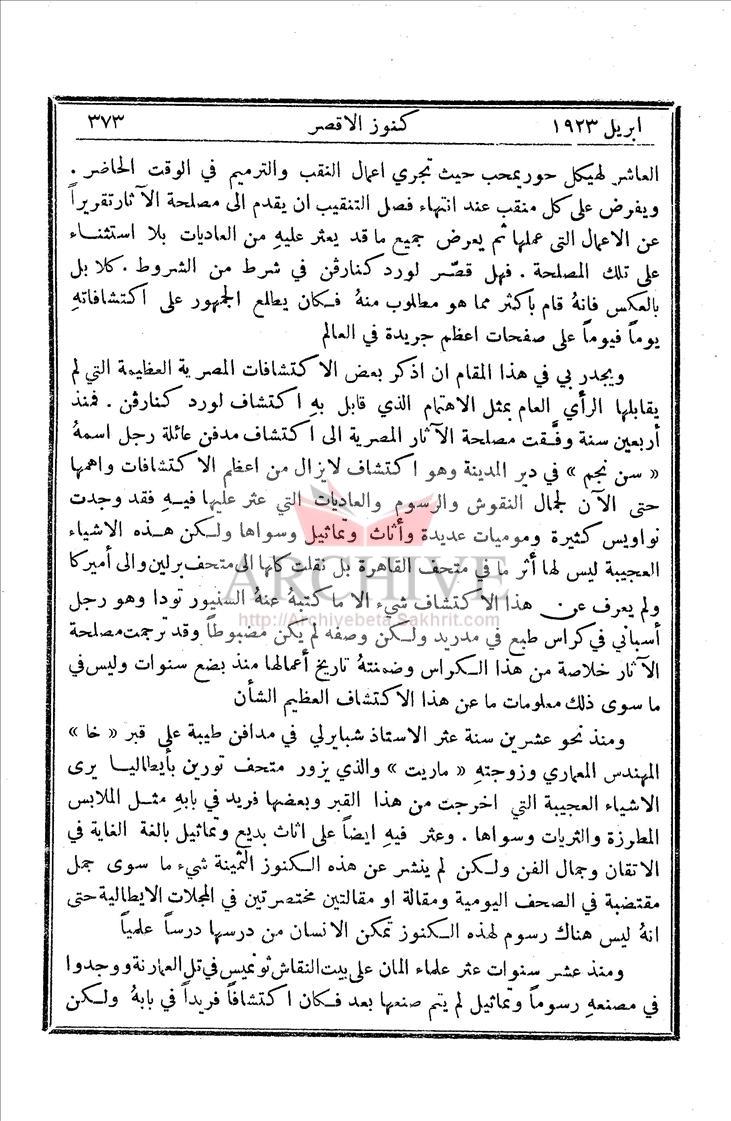 ابريل ١٩٢٣ كنوز الاقصر ٣٧٣
العاشر لهيكل حوريمحب حيث تجري اعمال النقب والترميم في الوقت الحاضر .
ويفرض على كل منقب عند انتهاء فصل التنقيب ان يقدم الى مصلحة الآثار تقريراً
عن الاعمال التى عملها ثم يعرض جميع ما قد يعثر عليهِ من العاديات بلا استثناء
على تلك المصلحة . فهل قصّر لورد كنارڤن في شرط من الشروط . كلا بل
بالعكس فانهُ قام باكثر مما هو مطلوب منهُ فكان يطلع الجمهور على اكتشافاتهِ
يوماً فيوماً على صفحات اعظم جريدة في العالم
ويجدر بي في هذا المقام ان اذكر بعض الاكتشافات المصرية العظيمة التي لم
يقابلها الرأي العام بمثل الاهتمام الذي قابل بهِ اكتشاف لورد كنارڤن . فمنذ
أربعين سنة وفّقت مصلحة الآثار المصرية الى اكتشاف مدفن عائلة رجل اسمهُ
« سن نجم » في دير المدينة وهو اكتشاف لايزال من اعظم الاكتشافات واهمها
حتى الآن لجمال النقوش والرسوم والعاديات التي عثر عليها فيهِ فقد وجدت
نواويس كثيرة وموميات عديدة وأثاث وتماثيل وسواها ولكن هذه الاشياء
العجيبة ليس لها أثر ما في متحف القاهرة بل نقلت كلها الى متحف برلين والى أميركا
ولم يعرف عن هذا الاكتشاف شيء الا ما كتبهُ عنهُ السنيور تودا وهو رجل
أسباني في كراس طبع في مدريد ولكن وصفه لم يكن مضبوطاً وقد ترجمت مصلحة
الآثار خلاصة من هذا الكراس وضمنتهُ تاريخ أعمالها منذ بضع سنوات وليس في
ما سوى ذلك معلومات ما عن هذا الاكتشاف العظيم الشأن
ومنذ نحو عشرين سنة عثر الاستاذ شبايرلي في مدافن طيبة على قبر « خا »
المهندس المعماري وزوجتهِ « ماريت » والذي يزور متحف تورين بأيطاليا يرى
الاشياء العجيبة التي اخرجت من هذا القبر وبعضها فريد في بابهِ مثل الملابس
المطرزة والثريات وسواها . وعثر فيهِ ايضاً على اثاث بديع وتماثيل بالغة الغاية في
الاتقان وجمال الفن ولكن لم ينشر عن هذه الكنوز الثمينة شيء ما سوى جمل
مقتضبة في الصحف اليومية ومقالة او مقالتين مختصرتين في المجلات الايطالية حتى
انهُ ليس هناك رسوم لهذه الكنوز تمكن الانسان من درسها درساً علمياً
ومنذ عشر سنوات عثر علماء المان على بيت النقاش ثوتميس في تل العمارنة ووجدوا
في مصنعهِ رسوماً وتماثيل لم يتم صنعها بعد فكان اكتشافاً فريداً في بابهُ ولكن
ARCHIVE
http://Archivebeta.Sakhrit.com